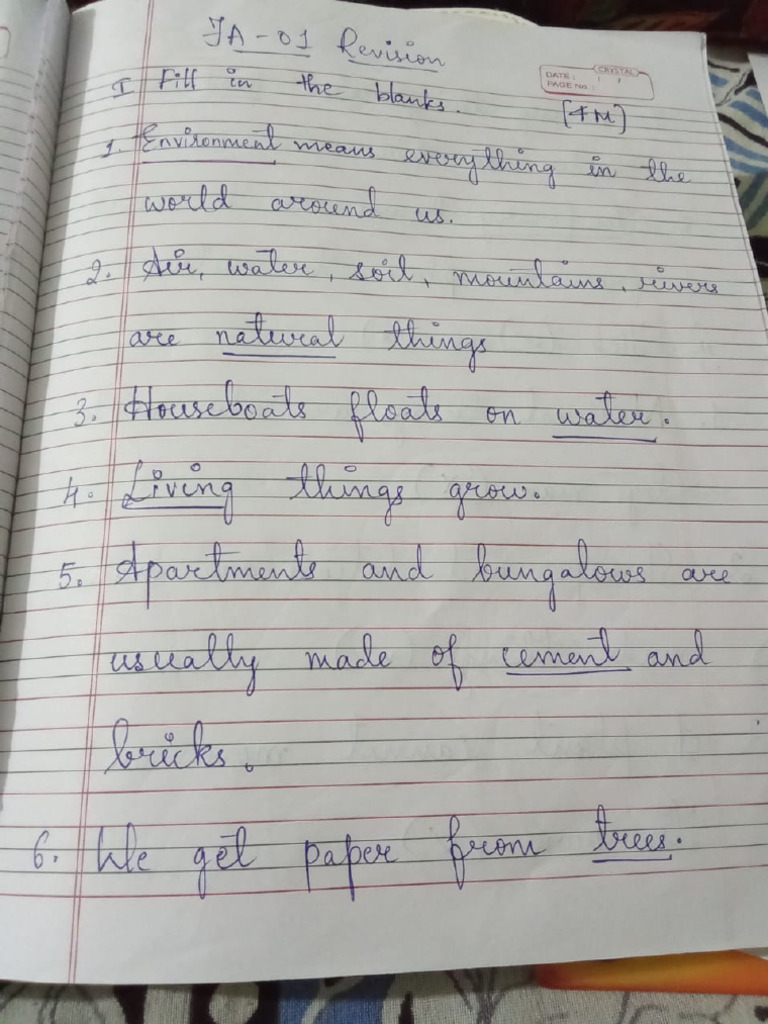 FA - 01 Revision
CRYSTAL
DATE :
PAGE No :
I Fill in the blanks. [4M]
1. Environment means everything in the
world around us.
2. Air, water, soil, mountains, rivers
are natural things
3. Houseboats floats on water.
4. Living things grow.
5. Apartments and bungalows are
usually made of cement and
bricks.
6. We get paper from trees.